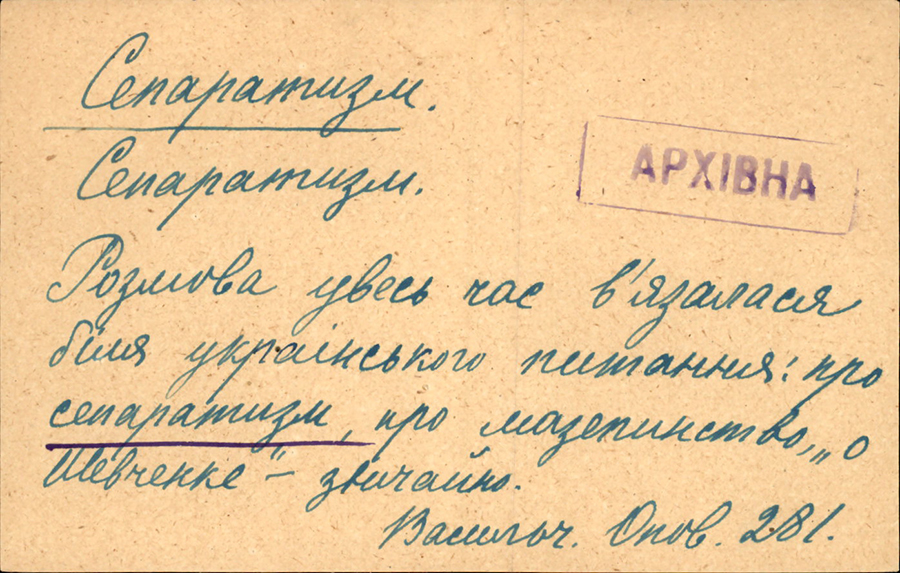 Сепаратизм.
АРХІВНА
Сепаратизм.
Розмова увесь час в'язалася
біля українського питання: про
сепаратизм, про мазепинство, „о
Шевченке" – звичайно.
Васильч. Опов. 281.